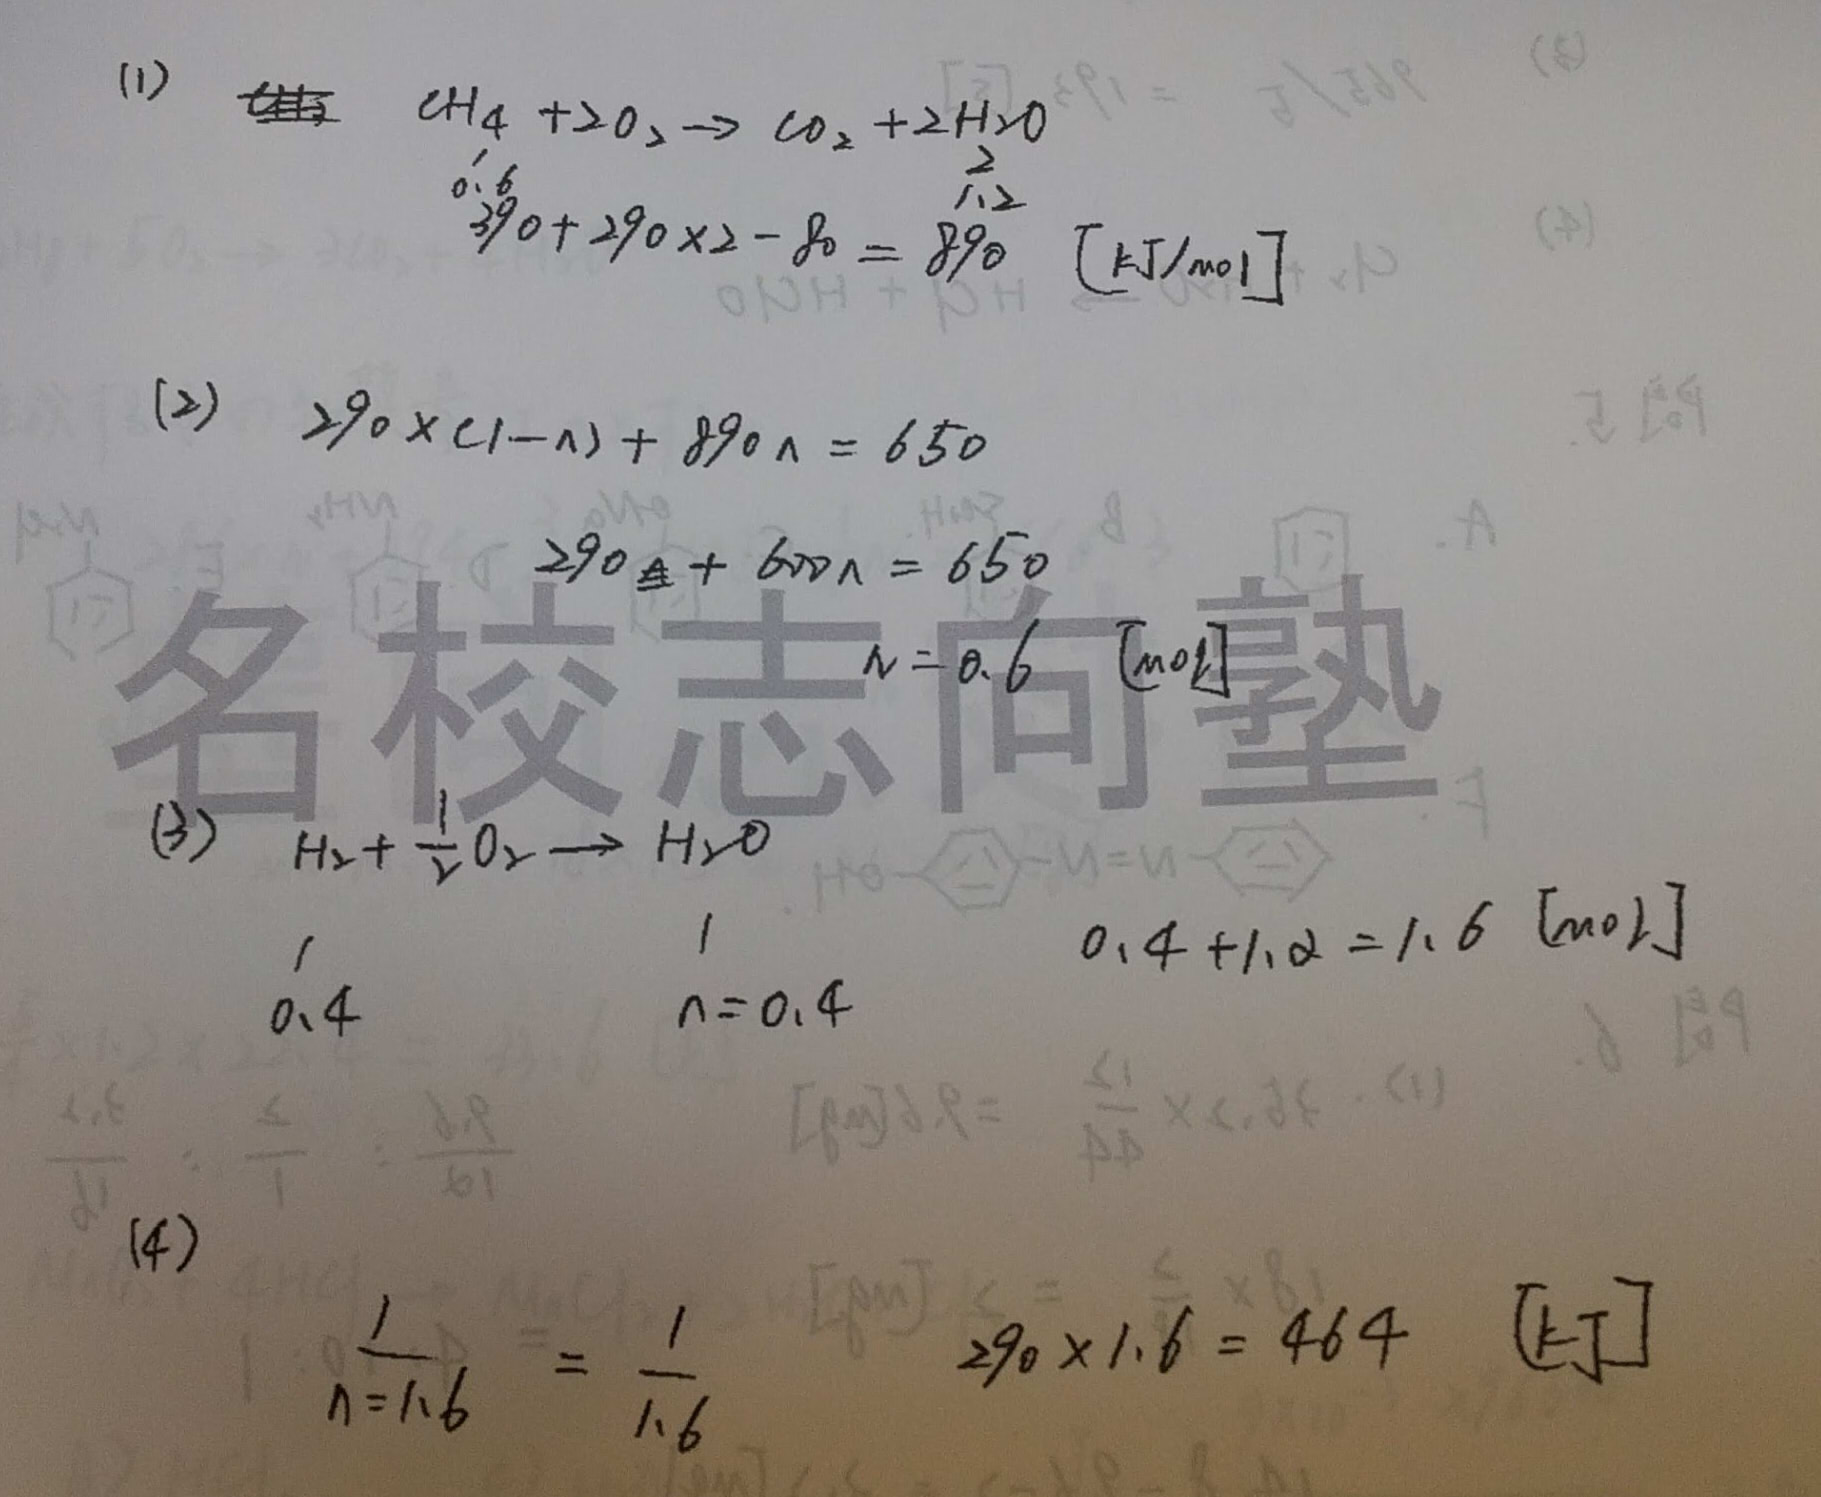 (1) CH4 + 2O2 → CO2 + 2H2O
1 2
0.6 1.2
390 + 290 × 2 - 80 = 890 [kJ/mol]
(2) 290 × (1-n) + 890n = 650
290 + 600n = 650
n = 0.6 [mol]
名校志向塾
(3) H2 + 1/2 O2 → H2O
1 1
0.4 n = 0.4 0.4 + 1.2 = 1.6 [mol]
(4)
1/n=1.6 = 1/1.6 290 × 1.6 = 464 [kJ]